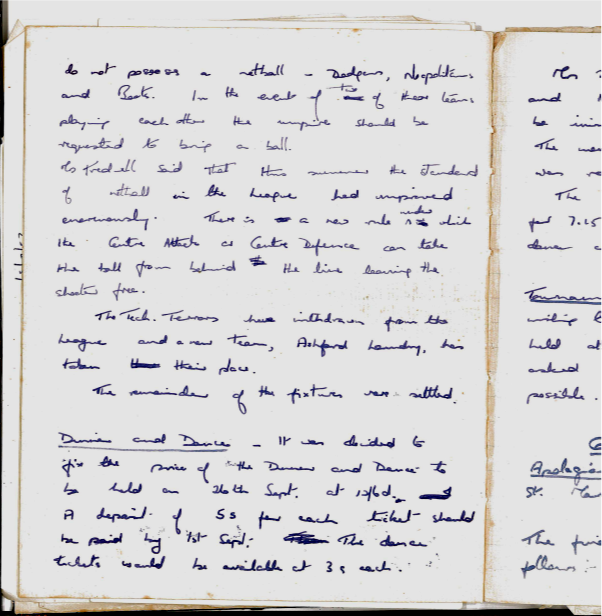 do not possess a netball - Dodgers, Neopolitans
and Boots. In the event of two of these teams
playing each other the umpire should be
requested to bring a ball.
Mrs said that this summer the standard
of netball in the League had improved
enormously. There is a new rule under which
the Centre Attack or Centre Defence can take
the ball from behind the line leaving the
shooter free.
The Tech. Terrors have withdrawn from the
League and a new team, Ashford Laundry, has
taken their place.
The remainder of the fixtures were settled.
Dinner and Dance - It was decided to
fix the price of the Dinner and Dance to
be held on 26th Sept. at 12/6d.
A deposit of 5s for each ticket should
be paid by 1st Sept. The dance
tickets would be available at 3s each.
Mrs
and
be
The
was
The
for 7.15
dance
held at
asked
possible.
Apologies
St.
The
follows :-